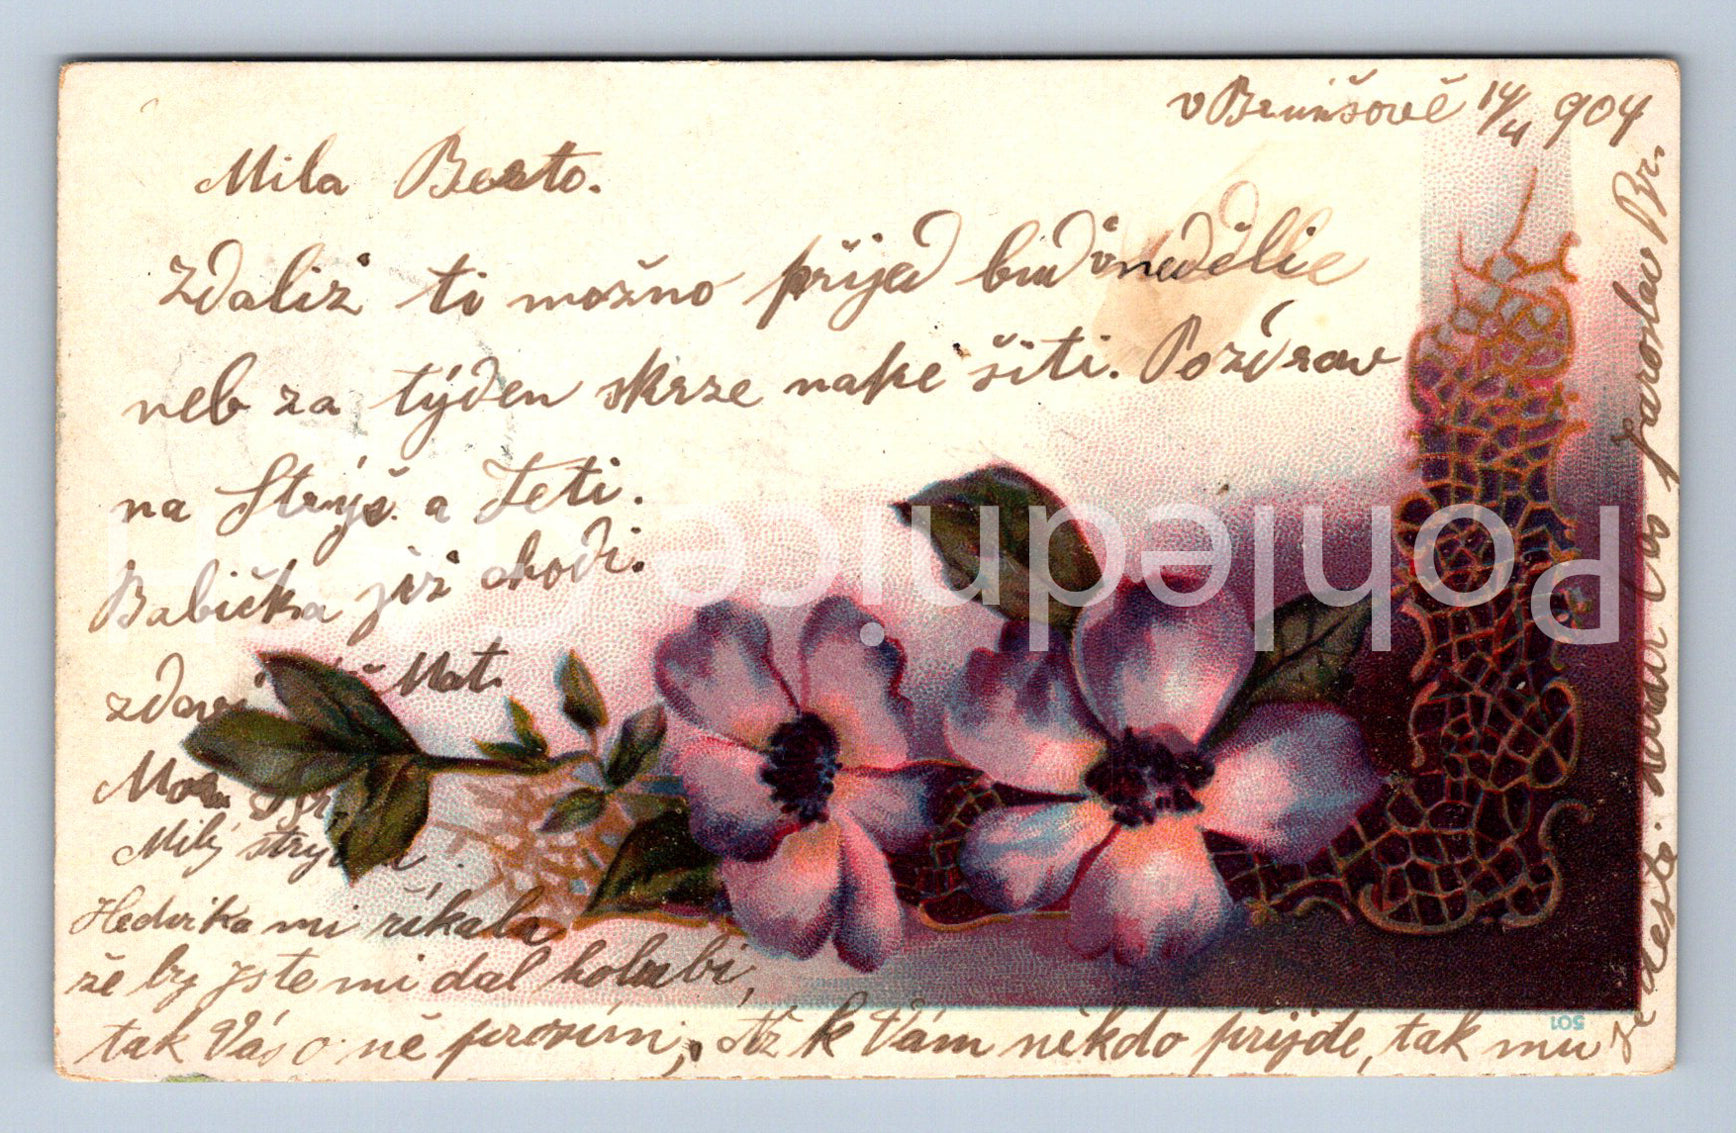 v Brníšově 14/4 904
Milá Berto.
Zdaliž ti možno přijeď buď v neděli
neb za týden skrze naké šití. Pozdrav
na Strýč. a Teti.
Babička již chodí.
zdraví Mat.
Br.
Milý strýčku
Hedvika mi říkala
že by jste mi dal holubi,
tak Vás o ně prosím, Až k Vám někdo přijde, tak mu
je dejte. Jaroslav Br.
Pohlednice
501